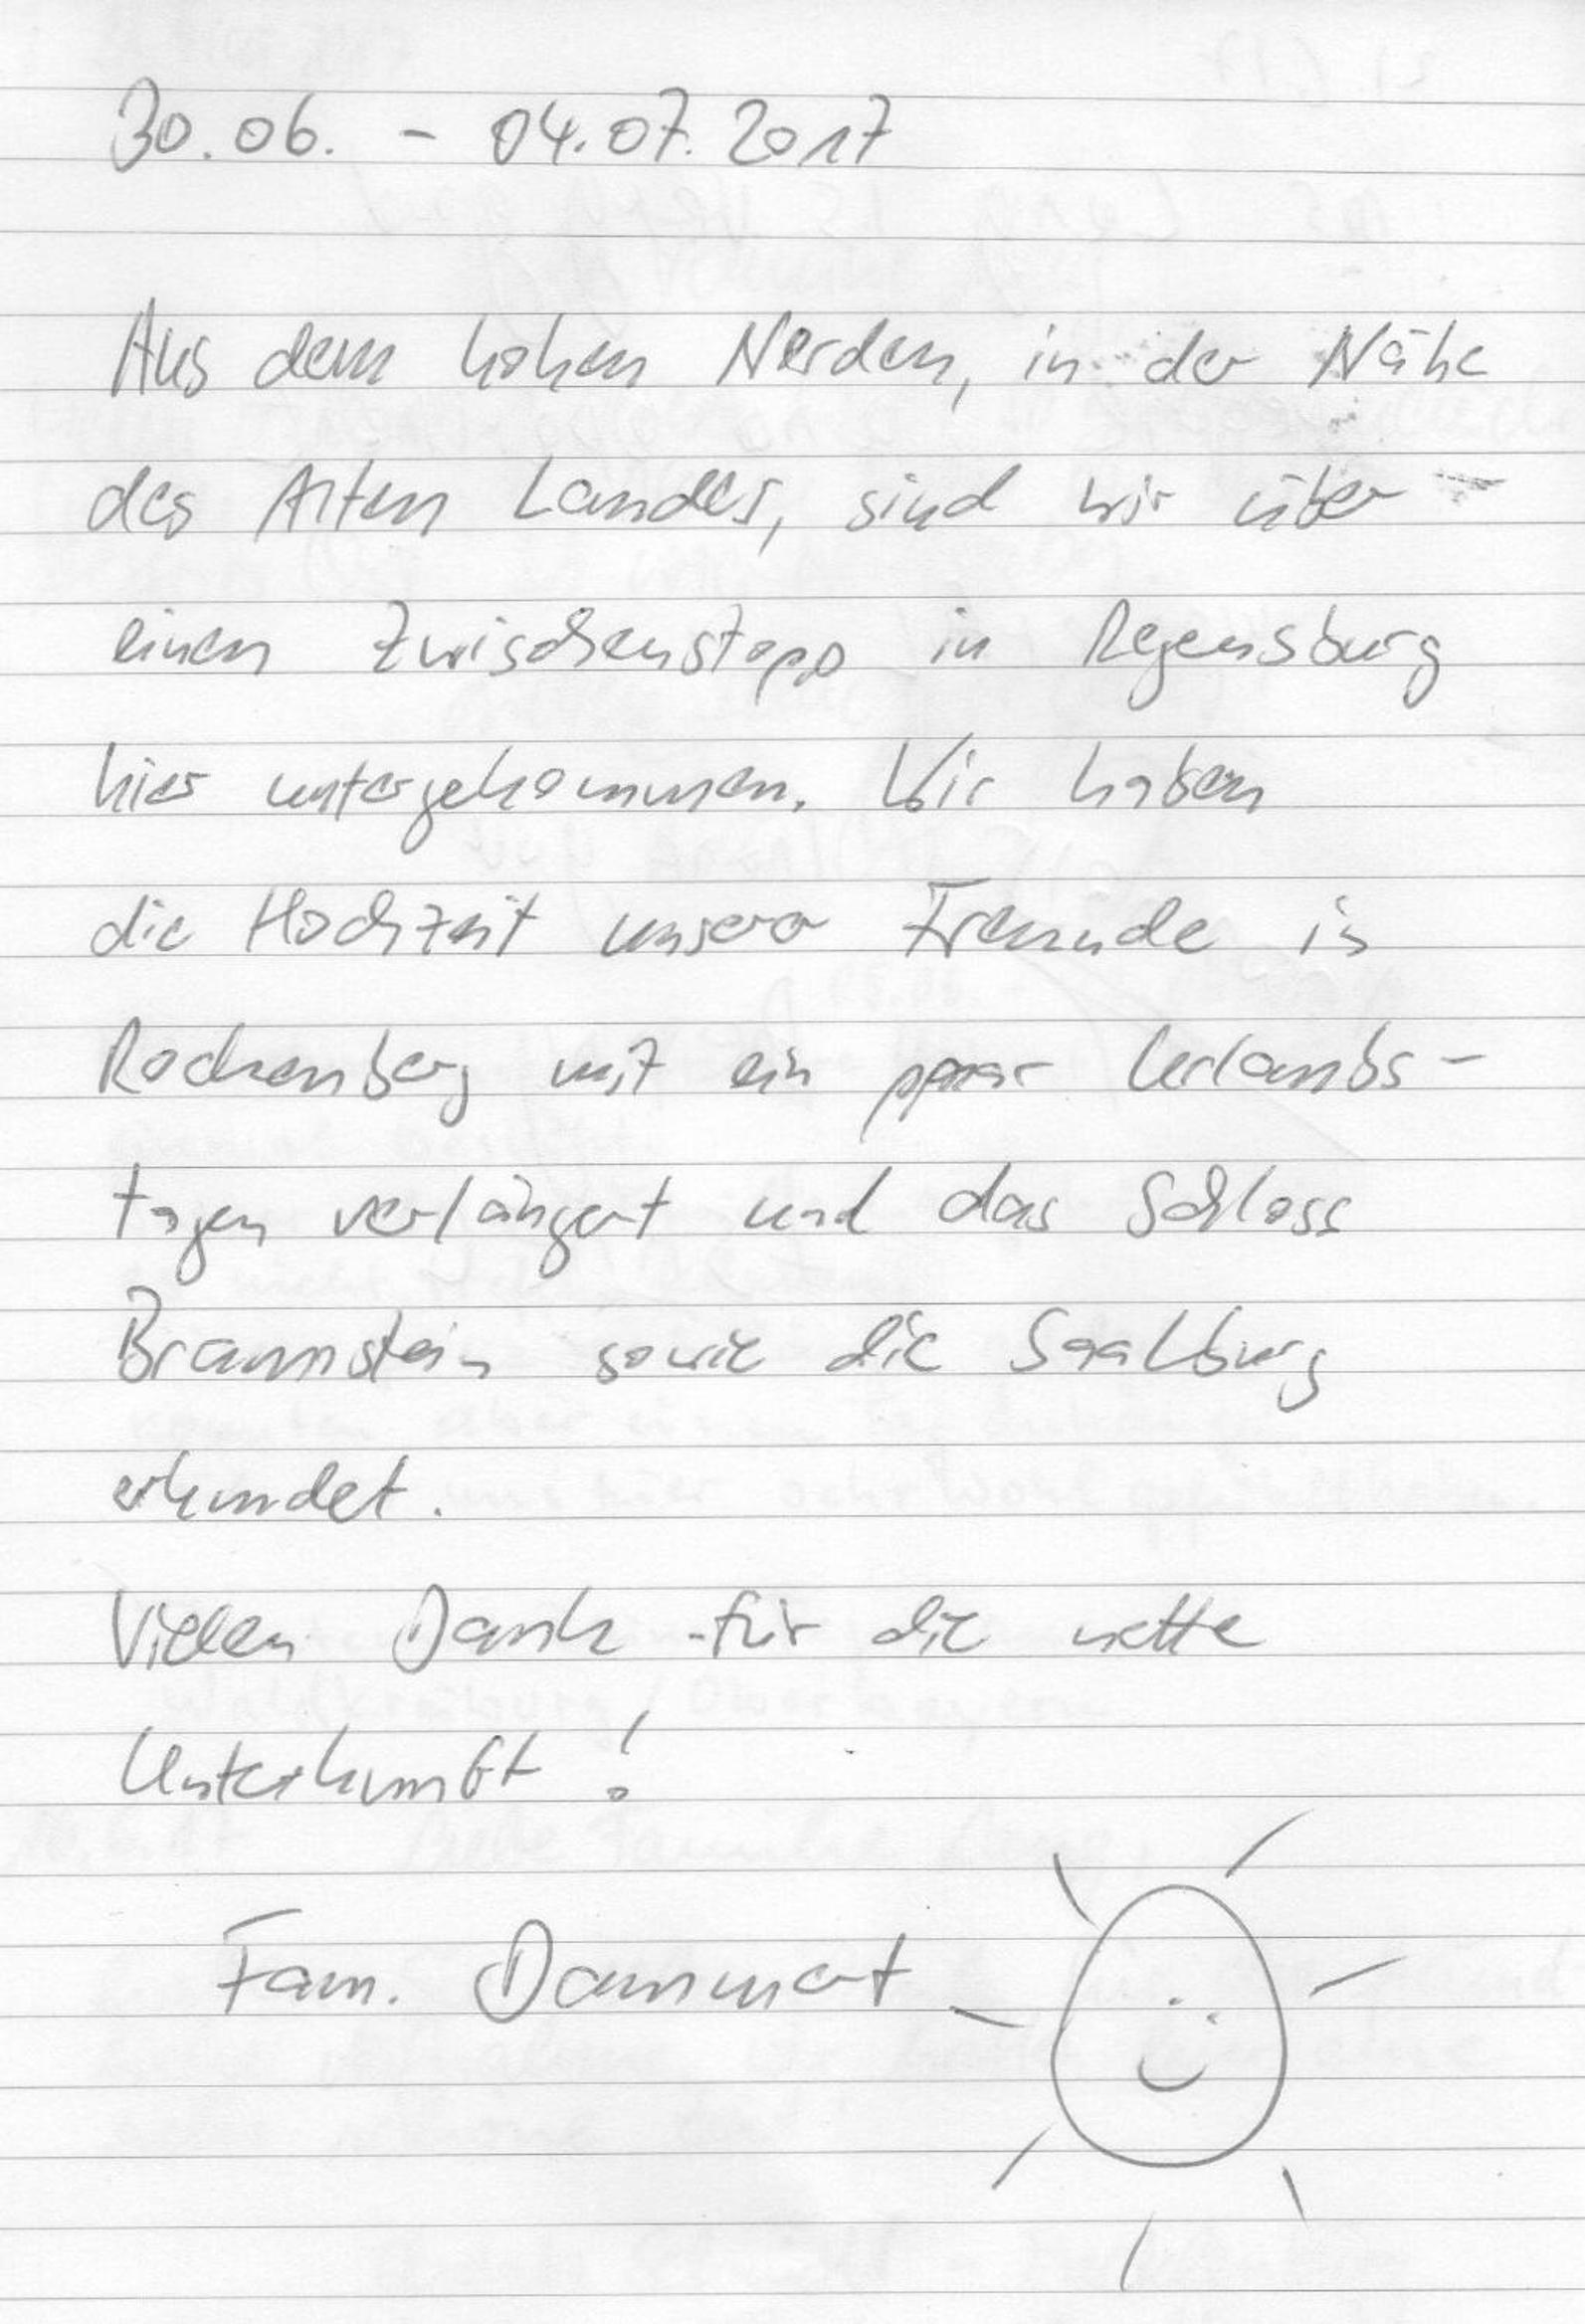 30.06. - 04.07.2017
Aus dem hohen Norden, in der Nähe
des Alten Landes, sind wir über
einen Zwischenstopp in Regensburg
hier untergekommen. Wir haben
die Hochzeit unserer Freunde in
Rockenberg mit ein paar Urlaubs-
tagen verlängert und das Schloss
Braunstein sowie die Saalburg
erkundet.
Vielen Dank für die nette
Unterkunft!
Fam. Dammert